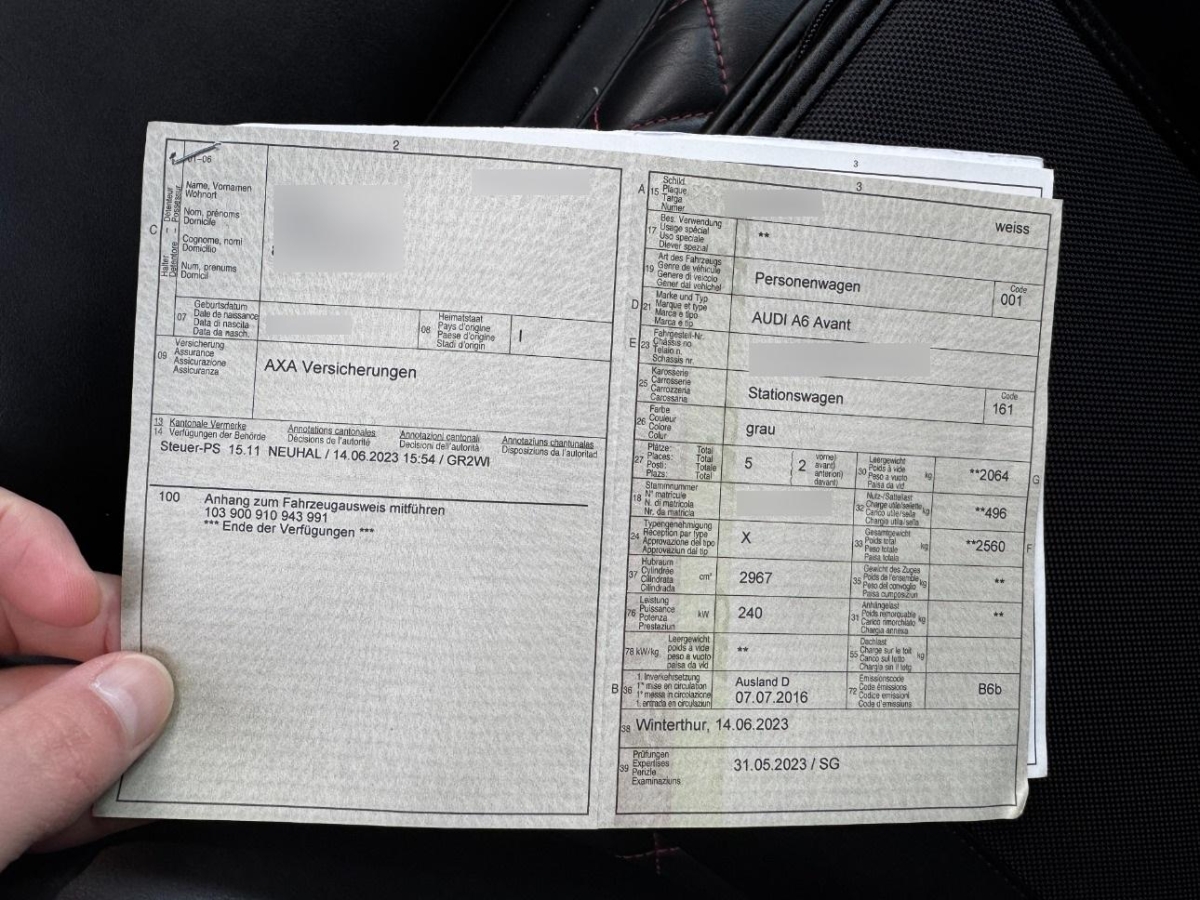 2
01-06
C
Halter Détenteur
Detentore Possessur
Name, Vornamen
Wohnort
Nom, prénoms
Domicile
Cognome, nomi
Domicilio
Num, prenums
Domicil
07
Geburtsdatum
Date de naissance
Data di nascita
Data da nasch.
08
Heimatstaat
Pays d'origine
Paese d'origine
Stadi d'origin
I
09
Versicherung
Assurance
Assicurazione
Assicuranza
AXA Versicherungen
13 Kantonale Vermerke Annotations cantonales Annotazioni cantonali Annotaziuns chantunalas
14 Verfügungen der Behörde Décisions de l'autorité Decisioni dell'autorità Disposiziuns da l'autoritad
Steuer-PS 15.11 NEUHAL / 14.06.2023 15:54 / GR2WI
100 Anhang zum Fahrzeugausweis mitführen
103 900 910 943 991
*** Ende der Verfügungen ***
3
3
A 15
Schild
Plaque
Targa
Numer
weiss
17
Bes. Verwendung
Usage spécial
Uso speciale
Diever spezial
**
19
Art des Fahrzeugs
Genre de véhicule
Genere di veicolo
Gener dal vehichel
Personenwagen
Code
001
D 21
Marke und Typ
Marque et type
Marca e tipo
Marca e tip
AUDI A6 Avant
E 23
Fahrgestell-Nr.
Châssis no
Telaio n.
Schassis nr.
25
Karosserie
Carrosserie
Carrozzeria
Carossaria
Stationswagen
Code
161
26
Farbe
Couleur
Colore
Colur
grau
27
Plätze: Total
Places: Total
Posti: Totale
Plazs: Total
5
2
vorne)
avant)
anteriori)
davant)
30
Leergewicht
Poids à vide
Peso a vuoto
Paisa da vid
kg
**2064
G
18
Stammnummer
N° matricule
N. di matricola
Nr. da matricla
32
Nutz-/Sattellast
Charge utile/sellette
Carico utile/sella
Chargia utila/sella
kg
**496
24
Typengenehmigung
Réception par type
Approvazione del tipo
Approvaziun dal tip
X
33
Gesamtgewicht
Poids total
Peso totale
Paisa totala
kg
**2560
F
37
Hubraum
Cylindrée
Cilindrata
Cilindrada
cm³
2967
35
Gewicht des Zuges
Poids de l'ensemble
Peso del convoglio
Paisa cumposiziun
kg
**
76
Leistung
Puissance
Potenza
Prestaziun
kW
240
31
Anhängelast
Poids remorquable
Carico rimorchiato
Chargia annexa
kg
**
78 kW/kg
Leergewicht
poids à vide
peso a vuoto
paisa da vid
**
55
Dachlast
Charge sur le toit
Carico sul tetto
Chargia sin il tetg
kg
B 36
1. Inverkehrsetzung
1re mise en circulation
1a messa in circolazione
1. entrada en circulaziun
Ausland D
07.07.2016
72
Emissionscode
Code émissions
Codice emissioni
Code d'emissiuns
B6b
38 Winterthur, 14.06.2023
39
Prüfungen
Expertises
Perizie
Examinaziuns
31.05.2023 / SG